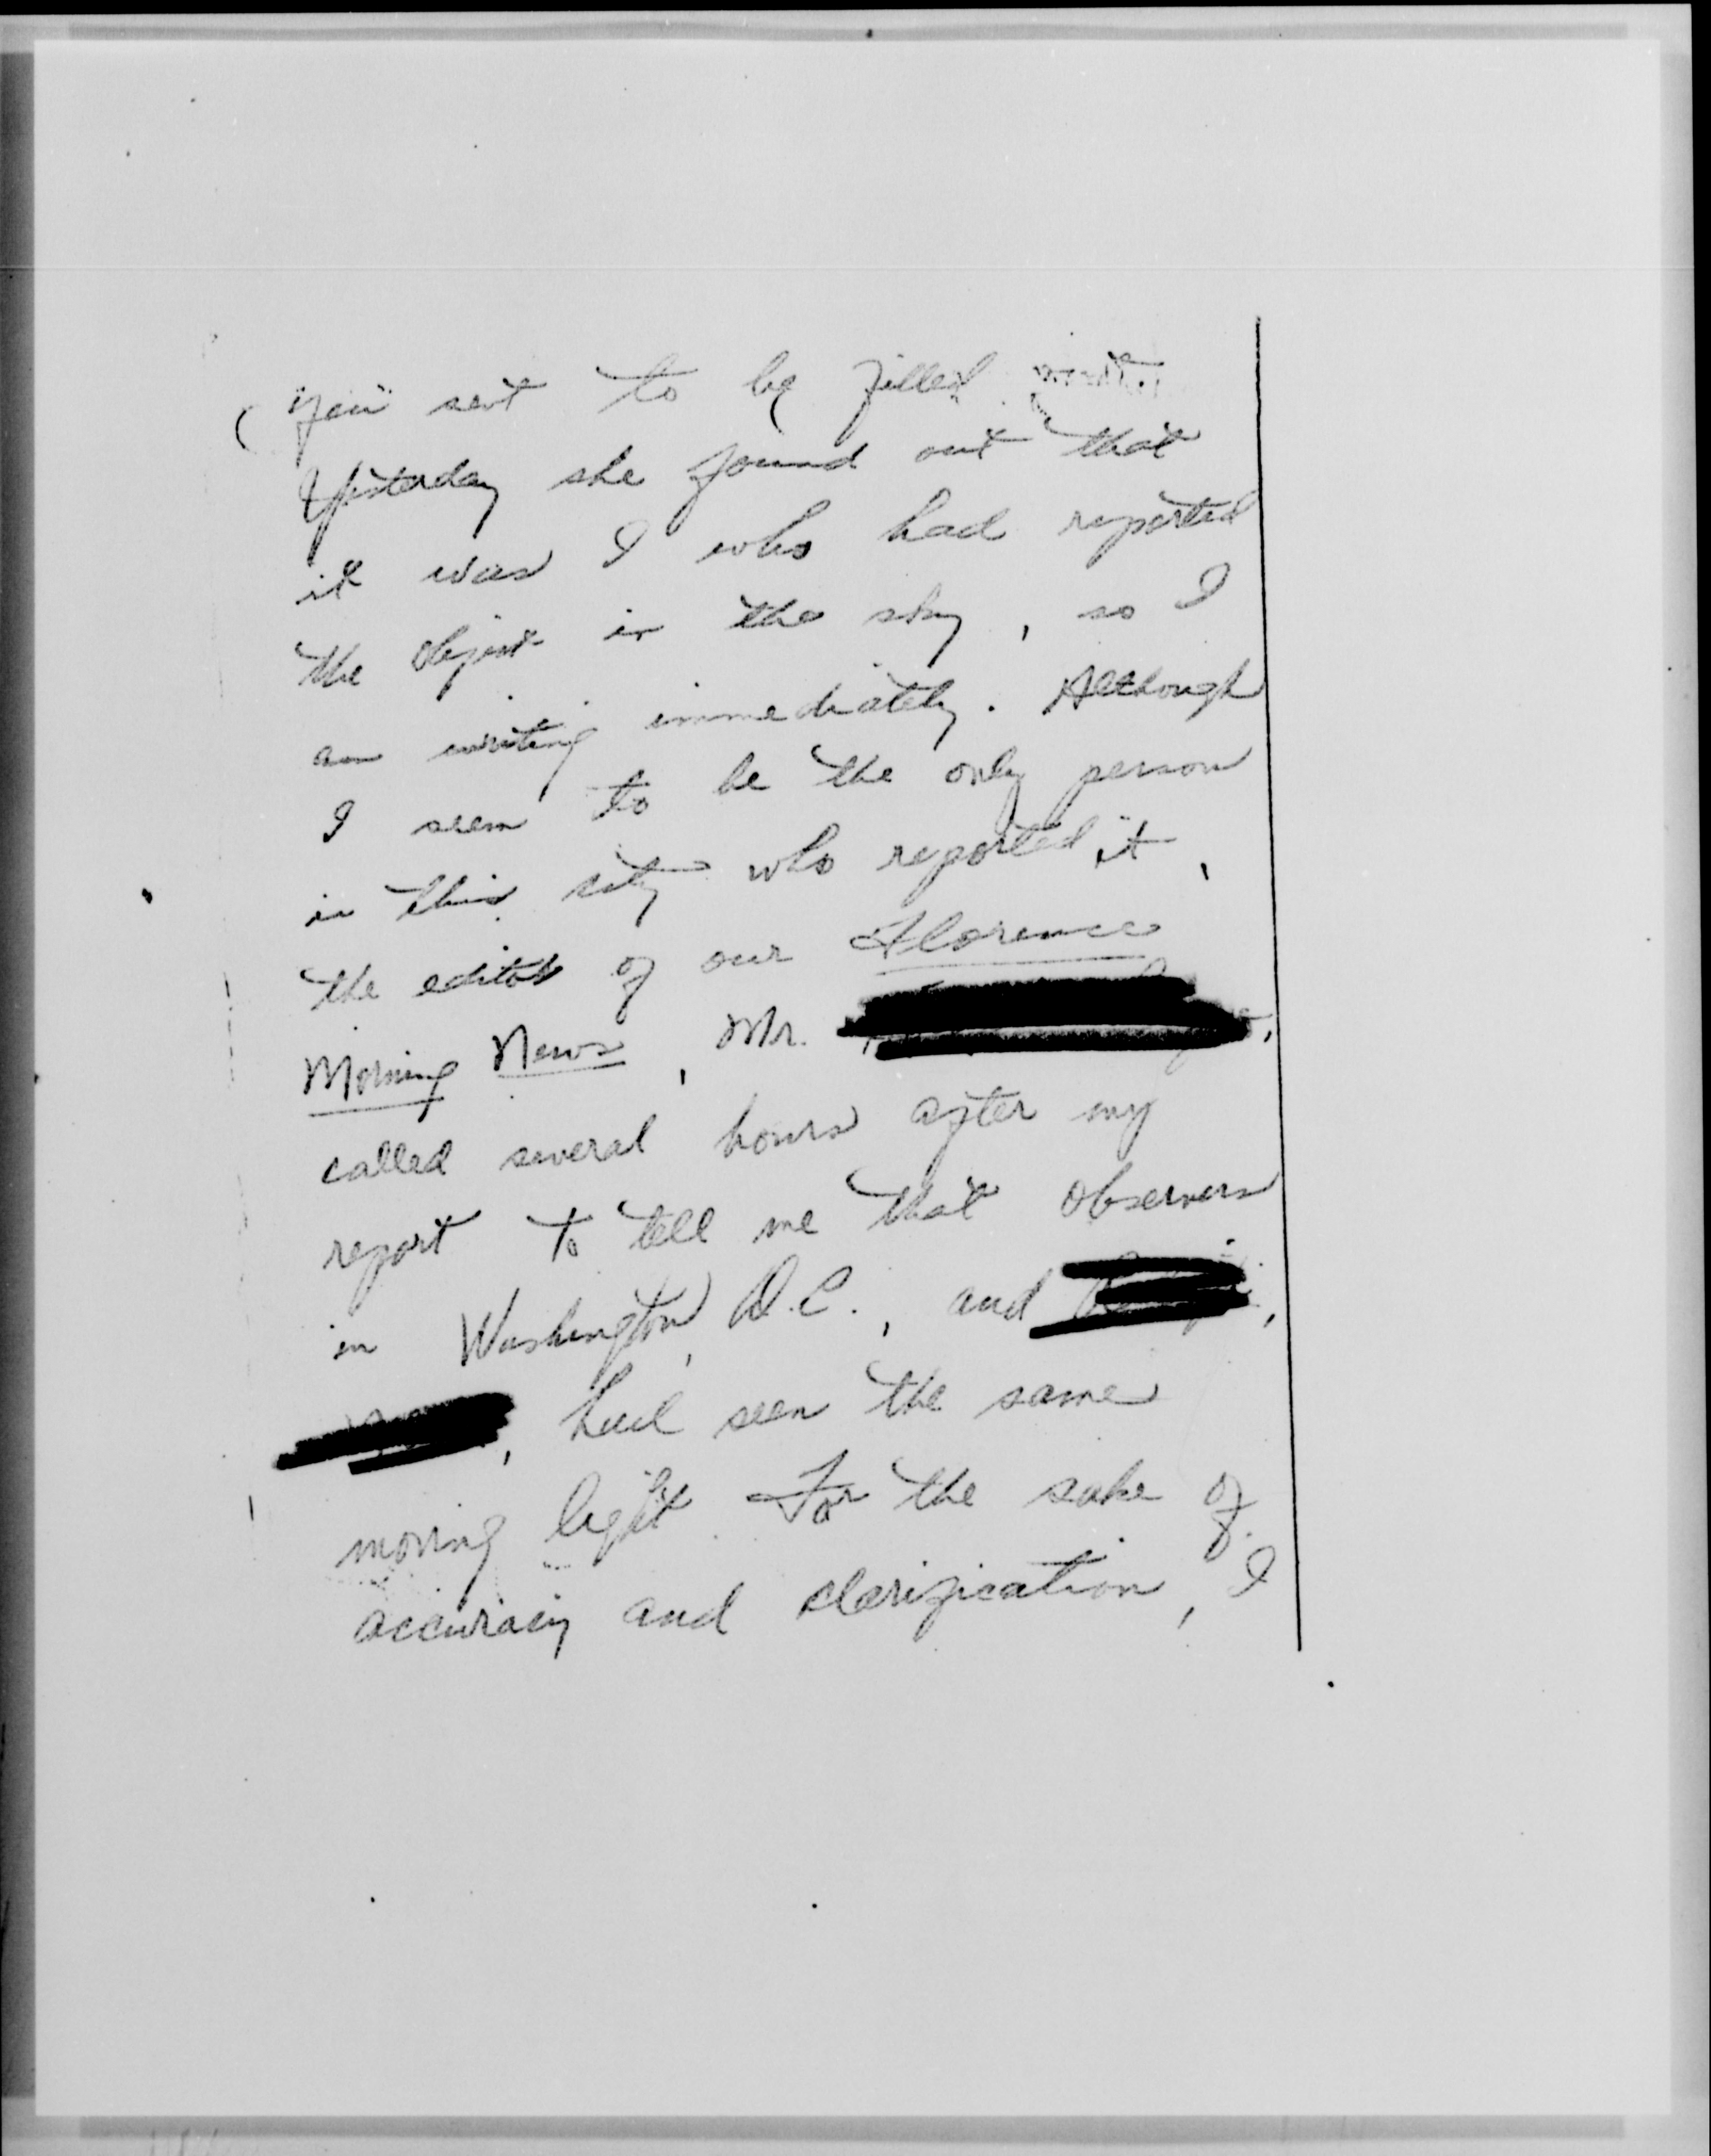 you sent to be filled
Yesterday she found out that
it was I who had reported
the object in the sky, so I
am writing immediately. Although
I seem to be the only person
in this city who reported it,
the editor of our Florence
Morning News, Mr.
called several hours after my
report to tell me that observers
in Washington, D.C., and
, had seen the same
moving light. For the sake of
accuracy and clarification, I